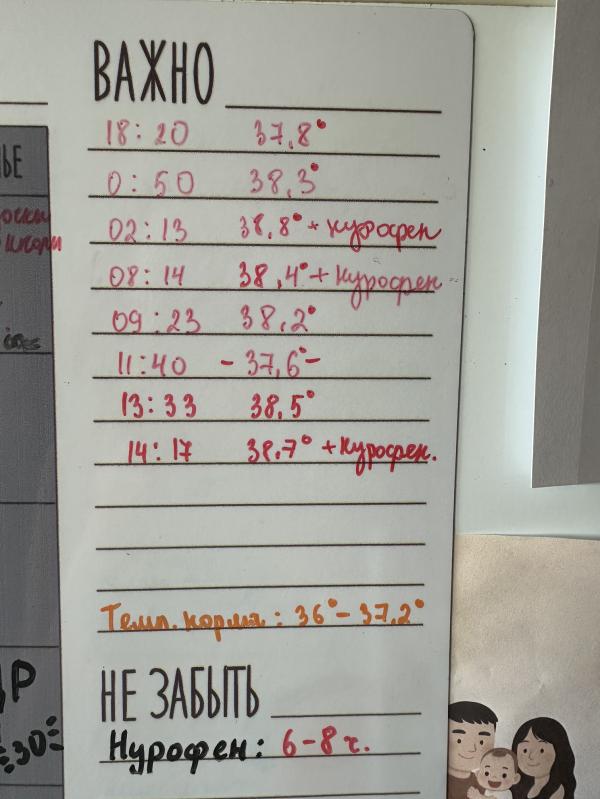 ВАЖНО
18:20 37,8°
0:50 38,3°
02:13 38,8° + Нурофен
08:14 38,4° + Нурофен
09:23 38,2°
11:40 - 37,6° -
13:33 38,5°
14:17 38,7° + Нурофен.
Темп. норма: 36° - 37,2°
НЕ ЗАБЫТЬ
Нурофен: 6-8 ч.
30